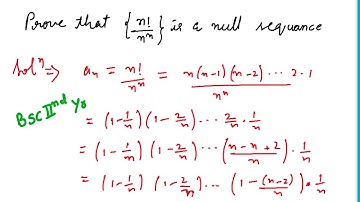 Prove that {n!/n^n} is a null sequance
Sol^n => a_n = n!/n^n = n(n-1)(n-2)...2·1/n^n
BSC II^nd yr
= (1-1/n)(1-2/n)...2/n·1/n
= (1-1/n)(1-2/n)...((n-n+2)/n)·1/n
= (1-1/n)(1-2/n)...(1-(n-2)/n)·1/n